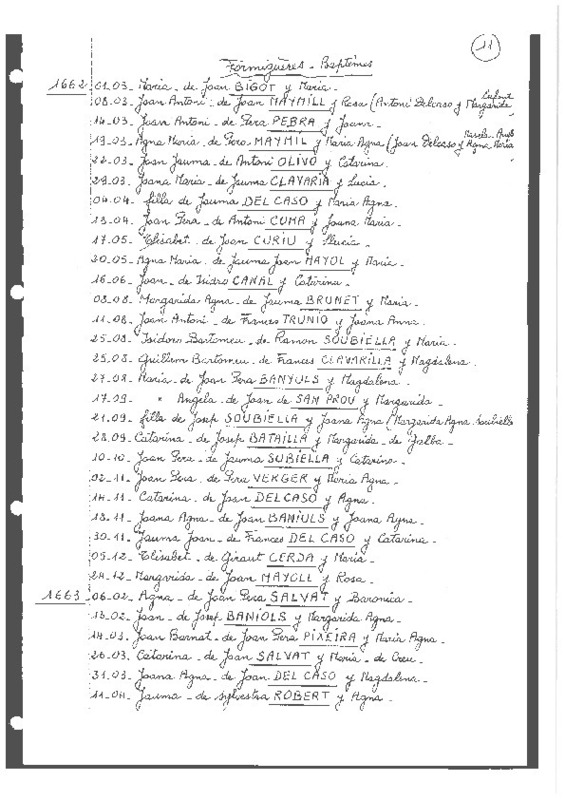 11
Formiguères - Baptêmes
1662 01.03- Maria - de Joan BIGOT y Maria -
08.03- Joan Antoni - de Joan MAYMILL y Rosa (Antoni Delcaso y Margarida
14.03- Joan Antoni - de Pera PEBRA y Joana -
19.03- Agna Maria - de Pero MAYMIL y Maria Agna (Joan Delcasso y Agna Maria
22.03- Joan Jauma - de Antoni OLIVO y Catarina -
29.03- Joana Maria - de Jauma CLAVARIA y Lucia -
04.04- filla de Jauma DEL CASO y Maria Agna -
13.04- Joan Pera - de Antoni COMA y Joana Maria -
17.05- Elisabet - de Joan CURIU y Llucia -
30.05- Agna Maria - de Jauma Joan MAYOL y Maria -
16.06- Joan - de Isidro CANAL y Catarina -
03.08- Margarida Agna - de Jauma BRUNET y Maria -
11.08- Joan Antoni - de Frances TRUNIO y Joana Anna -
25.08- Isidoro Bartomeu - de Ramon SOUBIELLA y Maria -
25.08- Guillem Bartomeu - de Frances CLAVARILLA y Magdalena -
27.08- Maria - de Joan Pera BANYULS y Magdalena -
17.09- " Angela - de Joan de SAN PROU y Margarida -
21.09- filla de Josep SOUBIELLA y Joana Agna (Margarida Agna Soubielle
28.09- Catarina - de Josep BATAILLA y Margarida - de Jalba -
10.10- Joan Pera - de Jauma SUBIELLA y Catarina -
02.11- Joan Pera - de Pera VERGER y Maria Agna -
14.11- Catarina - de Joan DELCASO y Agna -
18.11- Joana Agna - de Joan BANIULS y Joana Agna -
30.11- Jauma Joan - de Frances DEL CASO y Catarina -
05.12- Elisabet - de Giraut CERDA y Maria -
24.12- Margarida - de Joan MAYOLL y Rosa -
1663 06.02- Agna - de Joan Pera SALVAT y Baronica -
13.02- Joan - de Josep BANIOLS y Margarida Agna -
14.03- Joan Bernat - de Joan Pera PIXEIRA y Maria Agna -
26.03- Catarina - de Joan SALVAT y Maria - de Creu -
31.03- Joana Agna - de Joan DEL CASO y Magdalena -
11.04- Jauma - de sylvestra ROBERT y Agna -